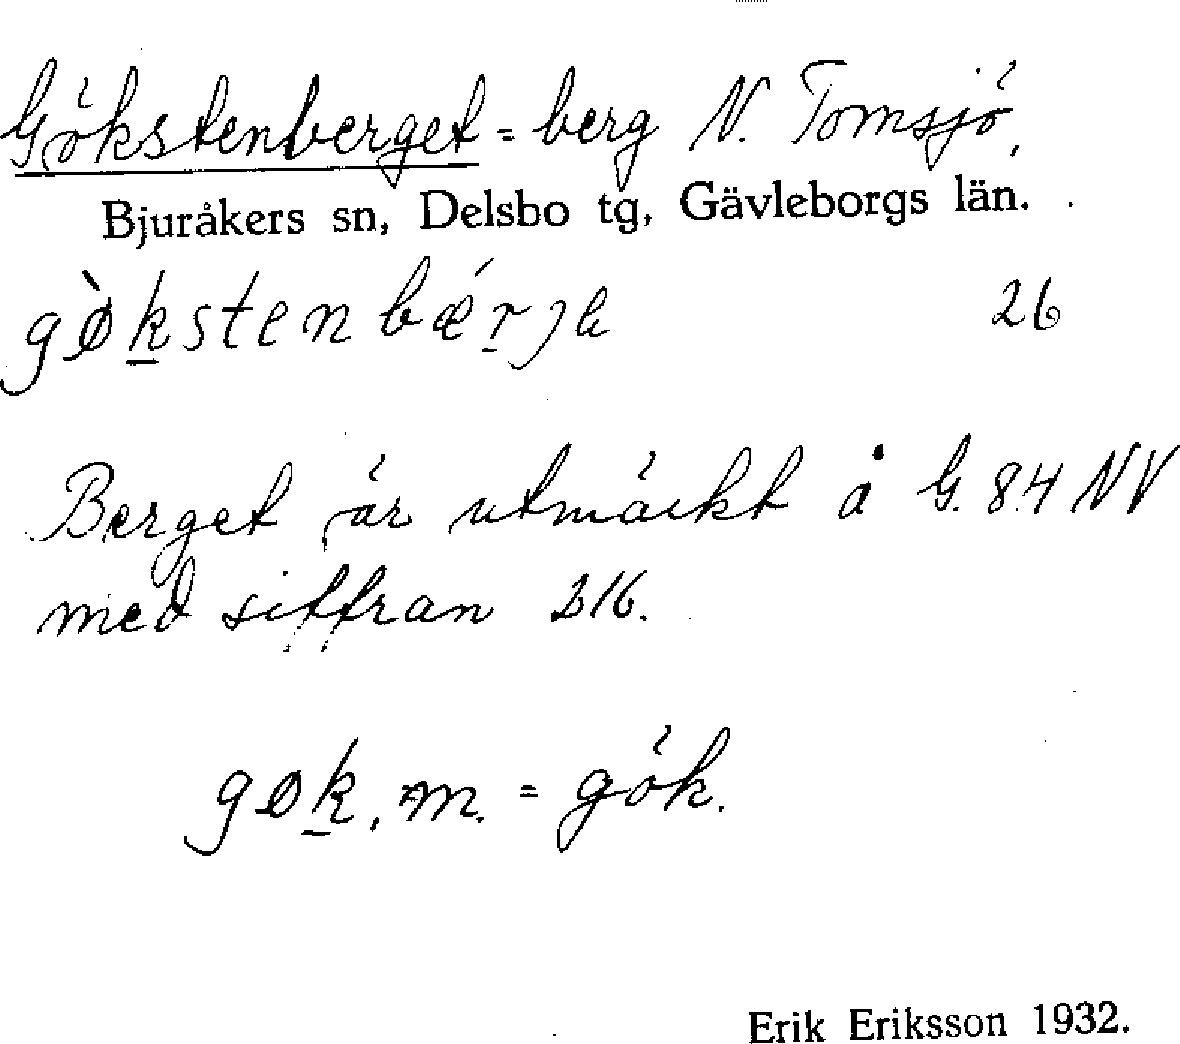 Gökstenberget = berg N. Tomsjö,
Bjuråkers sn, Delsbo tg, Gävleborgs län.
gø̀kstenbǽrje 26
Berget är utmärkt å G. 84 NV
med siffran 316.
gøk, m. = gök.
Erik Eriksson 1932.